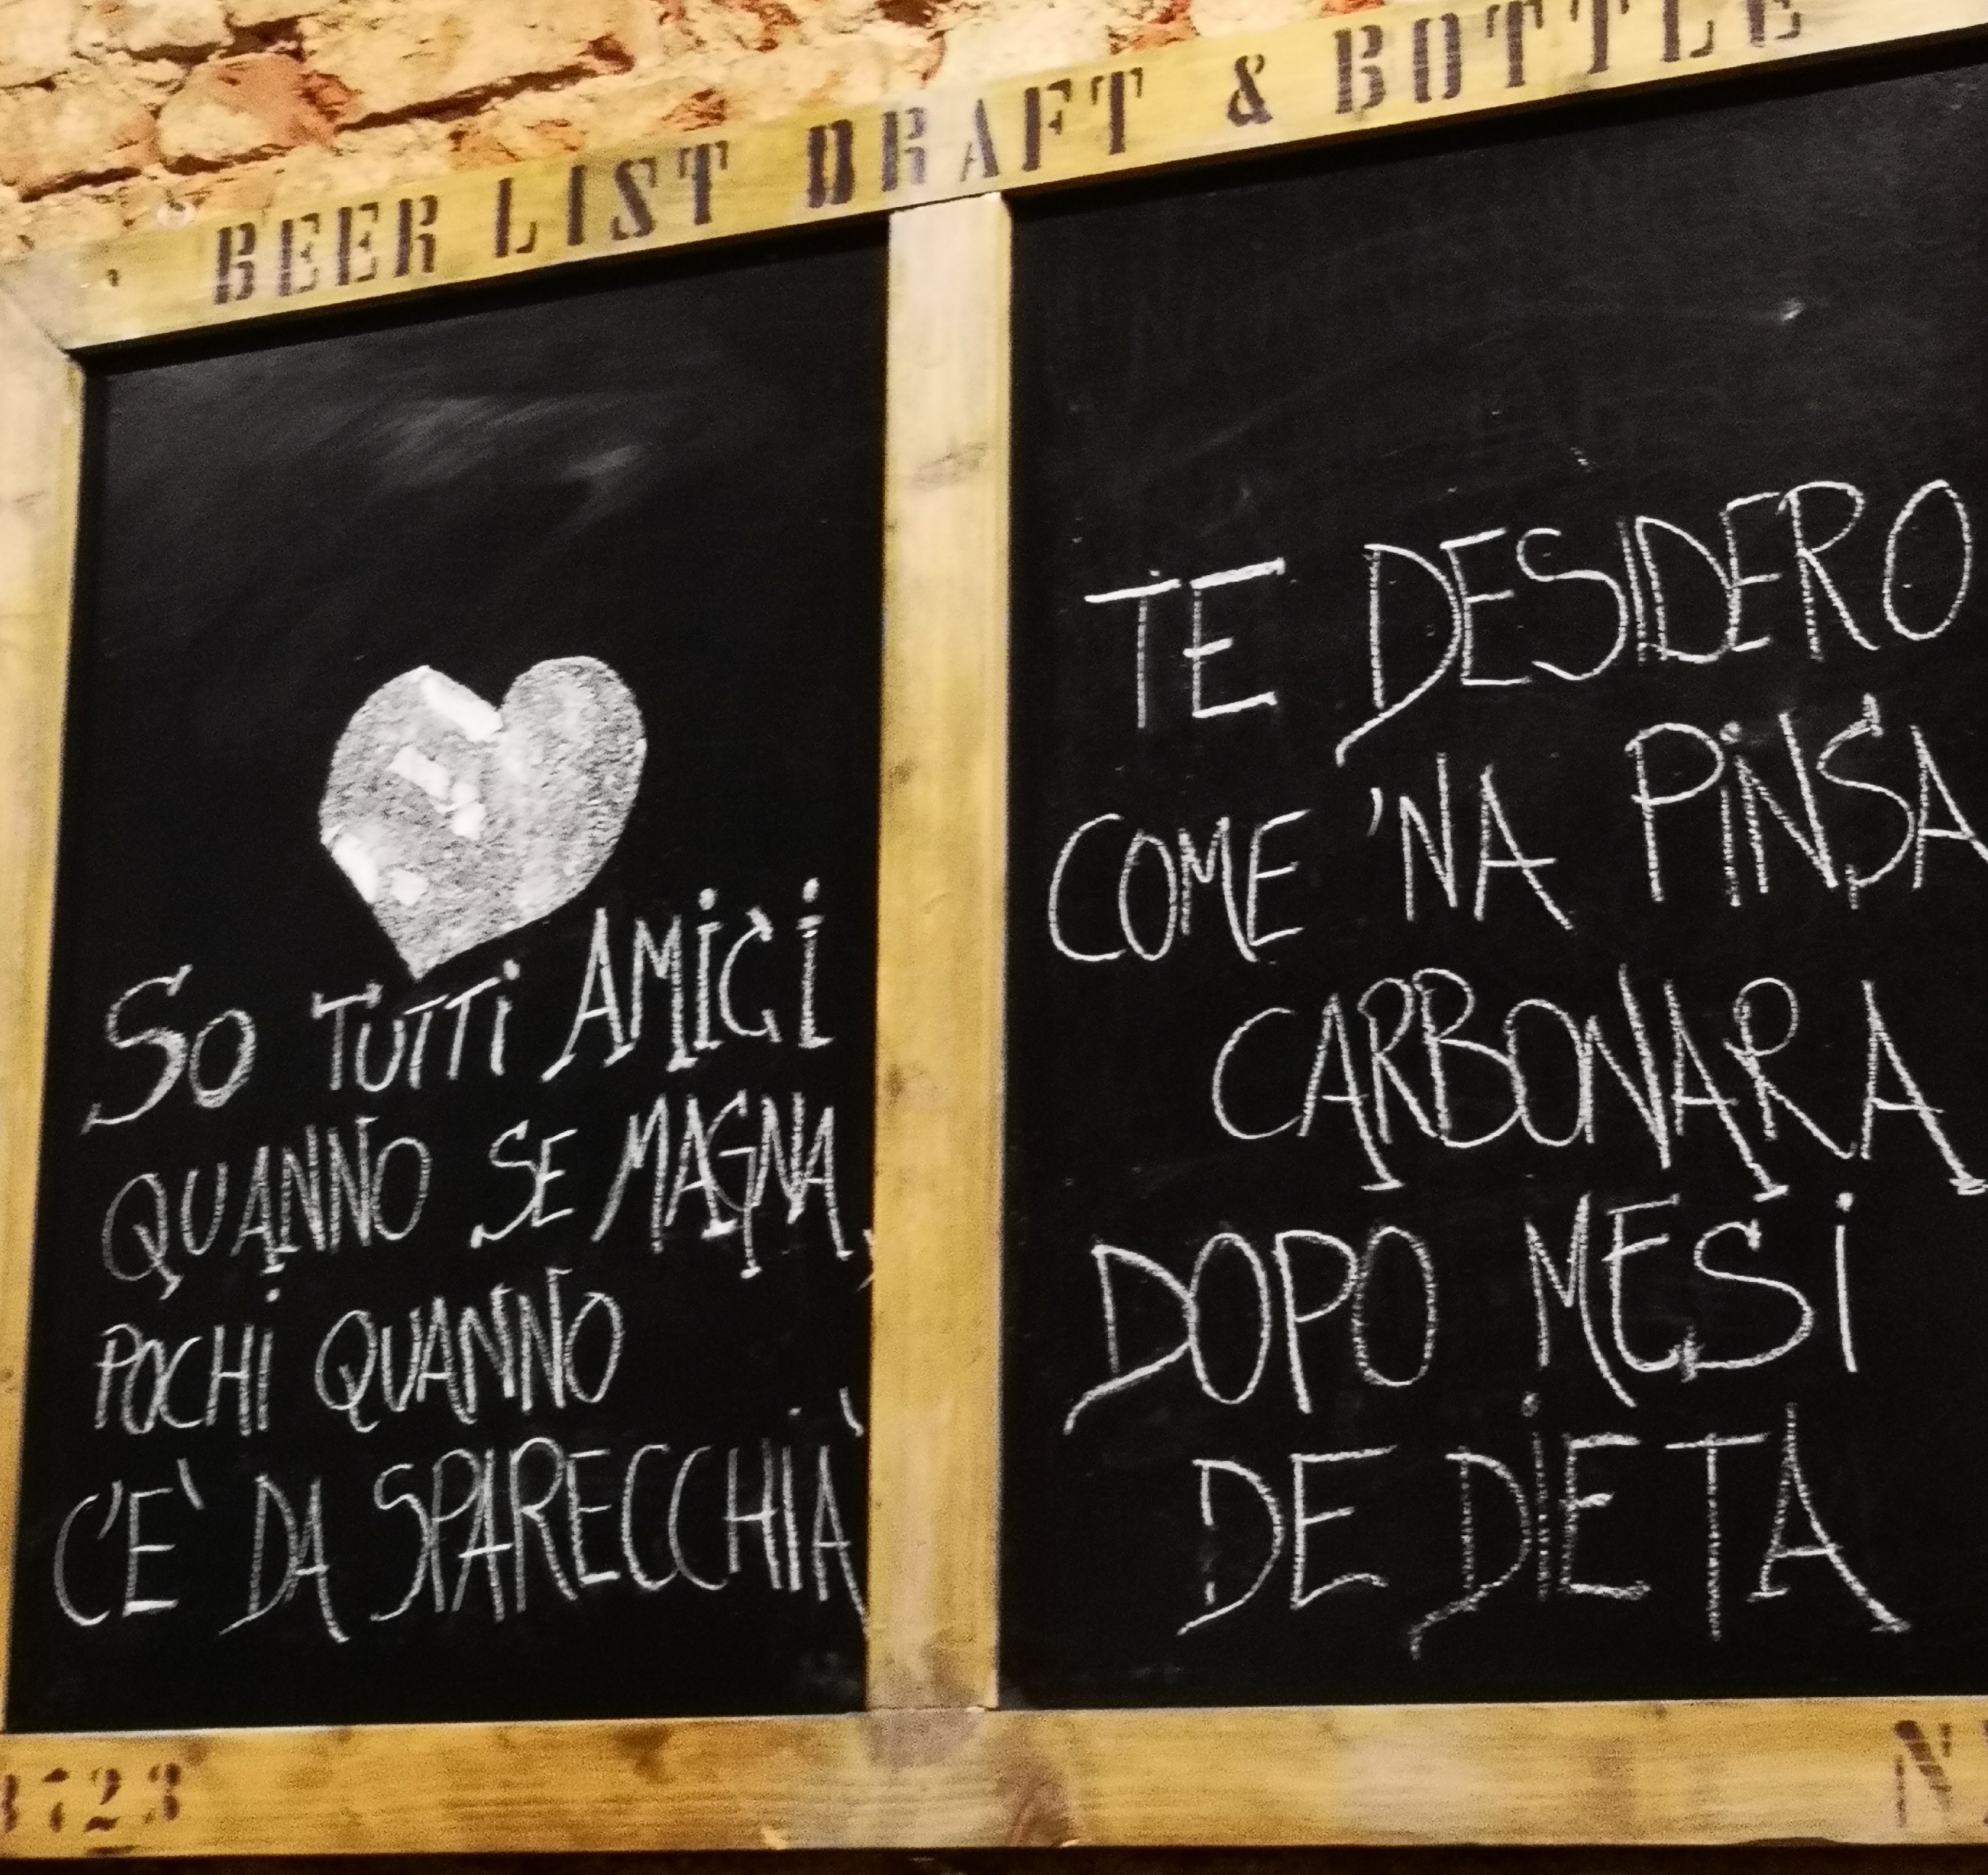 BEER LIST DRAFT & BOTTLE
So TUTTi AMiCi
QUANNO SE MAGNA,
POCHi QUANNO
C'E' DA SPARECCHIA'
TE DESIDERO
COME 'NA PiNSA
CARBONARA
DOPO MESi
DE DiETA
3723
N